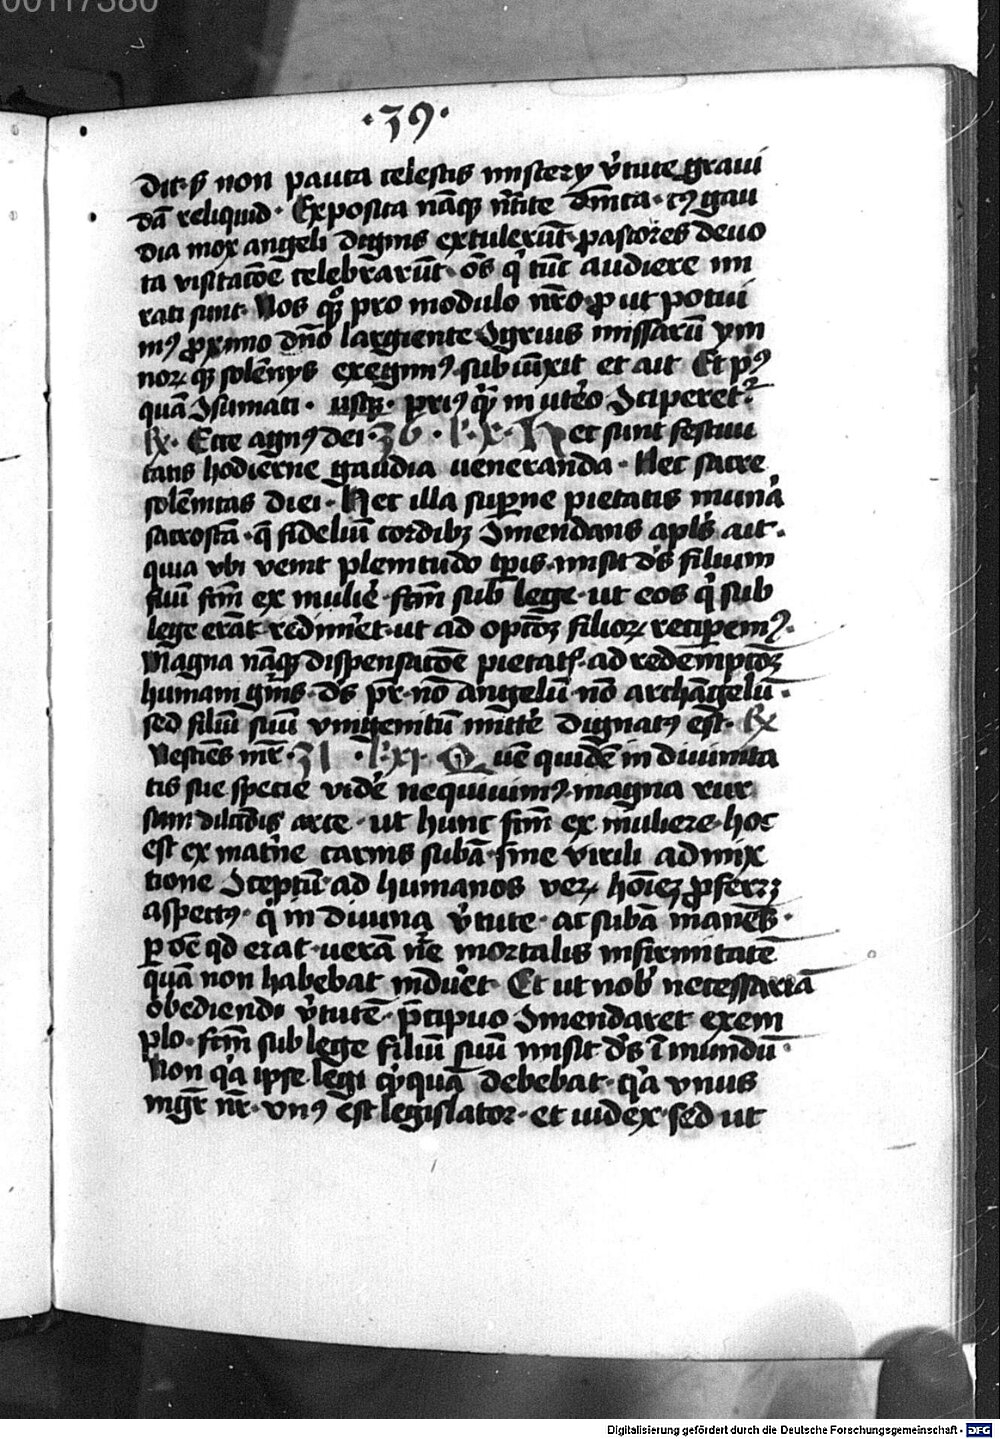 00117380
·39·
dit· s̄ non pauca celestis mistery v̄tute graui
dā reliquid· Exposita nāqꝫ nr̄ite dn̄ica· cꝰ gau
dia mox angeli dignis extulerūt· pastores deuo
ta visitacōe celebrarūt· oēs q̇ tūc audiere mi
rati sunt· Nos qꝫ pro modulo nr̄o· ꝓut potui
mꝰ ꝓximo dn̄o largiente ꝯgruis missarū ym
noꝝ qꝫ solēnys exegimꝰ· subiūxit et ait Et pꝰ
quā ꝯsumati· usqꝫ· priꝰ q̄ꝫ in utēo ꝯciperet᷑
℟· Ecce agnꝰ dei· 36· l· x· Hec sunt festiui
tatis hodierne gaudia ueneranda· Nec sacre
solēmitas diei· Hec illa suꝑne pietatis munā
sacrosctā· q̄ fidelium cordibꝫ ꝯmendans apl̄s ait·
quia vbi venit plenitudo tꝑis· misit dꝰs filium
suū fctm̄ ex mulie᷑· fctm̄ sub lege· ut eos q̇ sub
lege erāt redimēt· ut ad opcōꝫ filioꝝ reciꝑemꝰ·
Magna nāqꝫ dispensacōe pietatꝭ· ad redēmptōꝫ
humani gn̄is· dꝰs pr̄ nō angelū nō archāgelū·
sed filiū suū vnigenitū mitte᷑ dignatꝰ est· ℟
Nesciēs mr̄· 31· l· xi· Quē quidē in diuinita
tis sue specie vide᷑ nequiuimꝰ· magna rur
sum arte· ut hunc fctm̄ ex muliere· hoc
est ex mat᷑ne carnis subā· sine virili admix
tione ꝯceptū· ad humanos veꝝ hoīeꝫ ꝓferꝫ
aspectꝰ· q̇ in diuina v̄tute· ac subā manēs·
ꝑ oē qd erat· uerā nr̄e mortalis infirmitatē
quā non habebat induēt· Et ut nob᷑ necessariā
obediendi v̄tutē· p̄cipuo ꝯmendaret exem
plo· fctm̄ sub lege filiū suū misit dꝰs ī mūndū·
Non qa ipse legi quā debebat· qa vnus
mgr̄ nr̄· vnꝰ est legislator· et iudex· sed ut
Digitalisierung gefördert durch die Deutsche Forschungsgemeinschaft - DFG